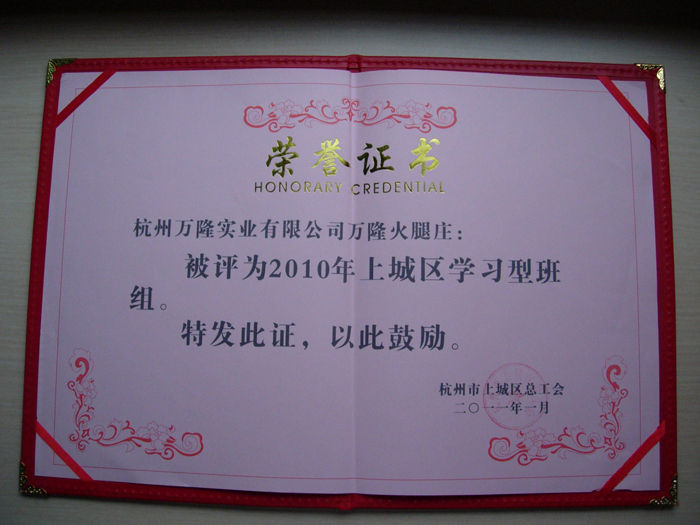 荣誉证书
HONORARY CREDENTIAL
杭州万隆实业有限公司万隆火腿庄：
被评为2010年上城区学习型班
组。
特发此证，以此鼓励。
杭州市上城区总工会
二〇一一年一月